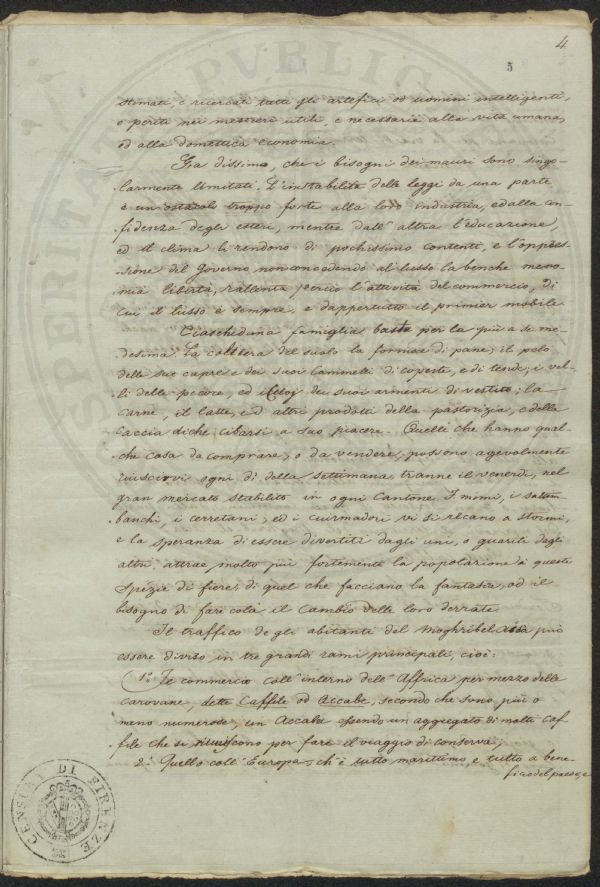 4
5
stimati, e ricercati tutti gli artefici ed uomini intelligenti,
e periti nei mestieri utili, e necessarie alla vita umana,
ed alla domestica economia.
Già dissimo, che i bisogni dei mauri sono singo-
larmente limitati. L'instabilità delle leggi da una parte
è un ostacolo troppo forte alla loro industria, ed alla con-
fidenza degli esteri, mentre dall'altra l'educazione,
ed il clima li rendono di pochissimo contenti, e l'oppres-
sione del Governo non concedendo al lusso la benche meno-
mia libertà, rallenta perciò l'attività del commercio, di
cui il lusso è sempre, e dappertutto il primier mobile
Ciascheduna famiglia basta per la più a se me-
desima. La coltura del suolo la fornisce di pane; il pelo
delle sue capre e dei suoi Cammelli di coperte, e di tende; i vel-
li delle pecore, ed i dei suoi armenti di vestito; la
Carne, il latte, ed altri prodotti della pastorizia, e della
Caccia di che cibarsi a suo piacere. Quelli che hanno qual-
che cosa da comprare, o da vendere, possono agevolmente
riuscirvi ogni dì della settimana tranne il venerdì, nel
gran mercato stabilito in ogni Cantone. I mimi, i saltim-
banchi, i cerretani, ed i ciurmadori vi si recano a stormi,
e la speranza di essere divertiti dagli uni, o guariti dagli
altri, attrae molto più fortemente la popolazione a queste
spezie di fiere, di quel che facciano la fantasia, od il
bisogno di fare colà il Cambio delle loro derrate.
Il traffico degli abitanti del Moghribel Assa può
essere diviso in tre grandi rami principali, cioè:
1.° Il commercio coll'interno dell'Affrica per mezzo delle
Carovane, dette Caffile od Accabe, secondo che sono più o
meno numerose, un Accaba essendo un aggregato di molti Caf-
file che si riuniscono per fare il viaggio di conserva;
2.° Quello coll'Europa, ch'è tutto marittimo e tutto a bene-
fizio del paese, e
CENSURA DI FIRENZE